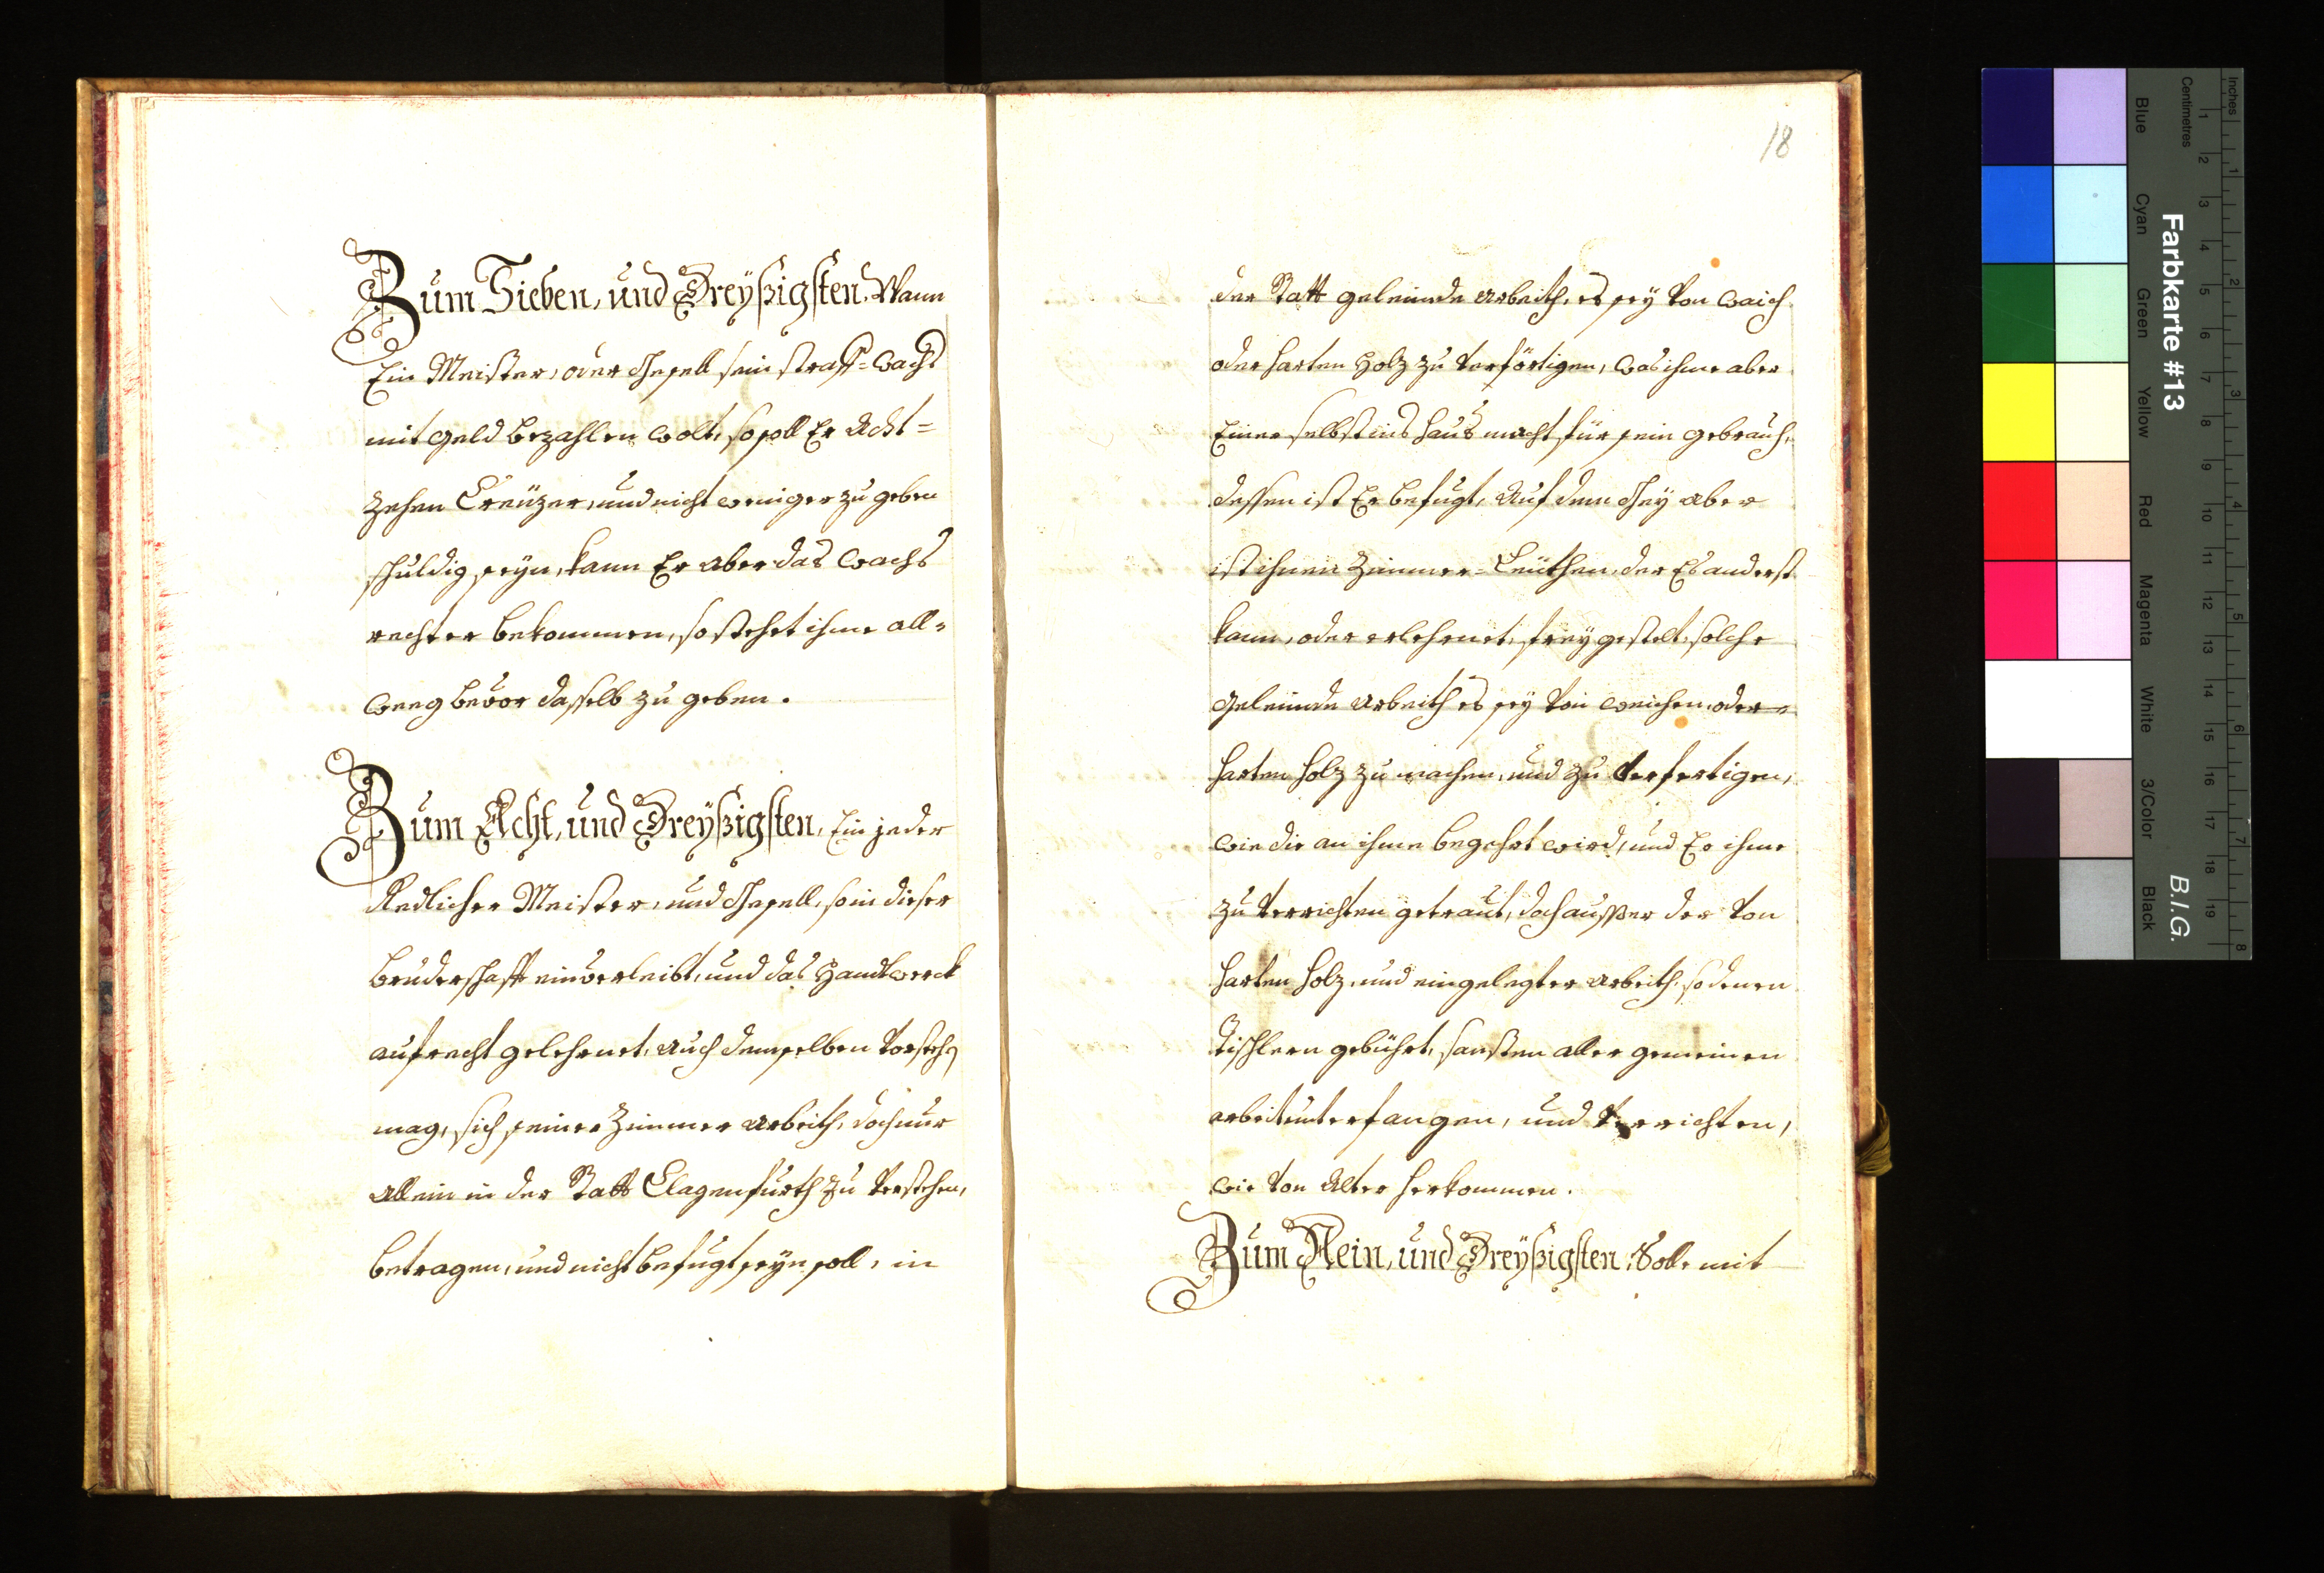 Zum Sieben, und Dreyßigsten. Wann
Ein Meister, oder Gesell sein straff=wachs
mit Geld bezahlen wolt, so soll Er Acht=
zehen Creüzer, und nicht weniger zu geben
schuldig seyn, kann Er aber das wachs
rechter bekommen, so stehet ihme all=
weeg bevor dasselb zu geben.
Zum Acht, und Dreyßigsten, Ein jeder
Redlicher Meister, und Gesell, so in dieser
Bruderschafft einverleibt, und das Handtwerck
aufrecht gelehrnet, auch demselben vorstehen
mag, sich seiner Zimmer arbeith, doch nur
allein in der Statt Clagenfurth zu verstehen,
betragen, und nicht befugt seyn soll, in
18
der Statt geleimde arbeith, es sey von waich
oder harten Holz zu verförtigen, was ihme aber
Einer selbst ins Haus macht für sein gebrauch,
dessen ist Er befugt, Auf dem Gey aber
ist ihnen Zimmer=Leüthen, der Es anderst
kann, oder erlehrnet, frey gestelt, solche
geleimde arbeith es sey von weichen, oder
harten Holz zu machen, und zu verfertigen,
wie die an ihme begehrt wird, und Er ihme
zu verrichten getraut, doch ausser der von
harten Holz, und eingelegter arbeith, so denen
Tischlern gebührt, sonsten aller gemeinen
arbeit unterfangen, und verrichten,
wie von Alter herkommen.
Zum Nein, und Dreyßigsten, Soll mit
Inches
Centimetres
Farbkarte #13
B.I.G.
Blue
Cyan
Green
Yellow
Red
Magenta
White
3/Color
Black
1 2 3 4 5 6 7 8 9 10 11 12 13 14 15 16 17 18 19
1 2 3 4 5 6 7 8